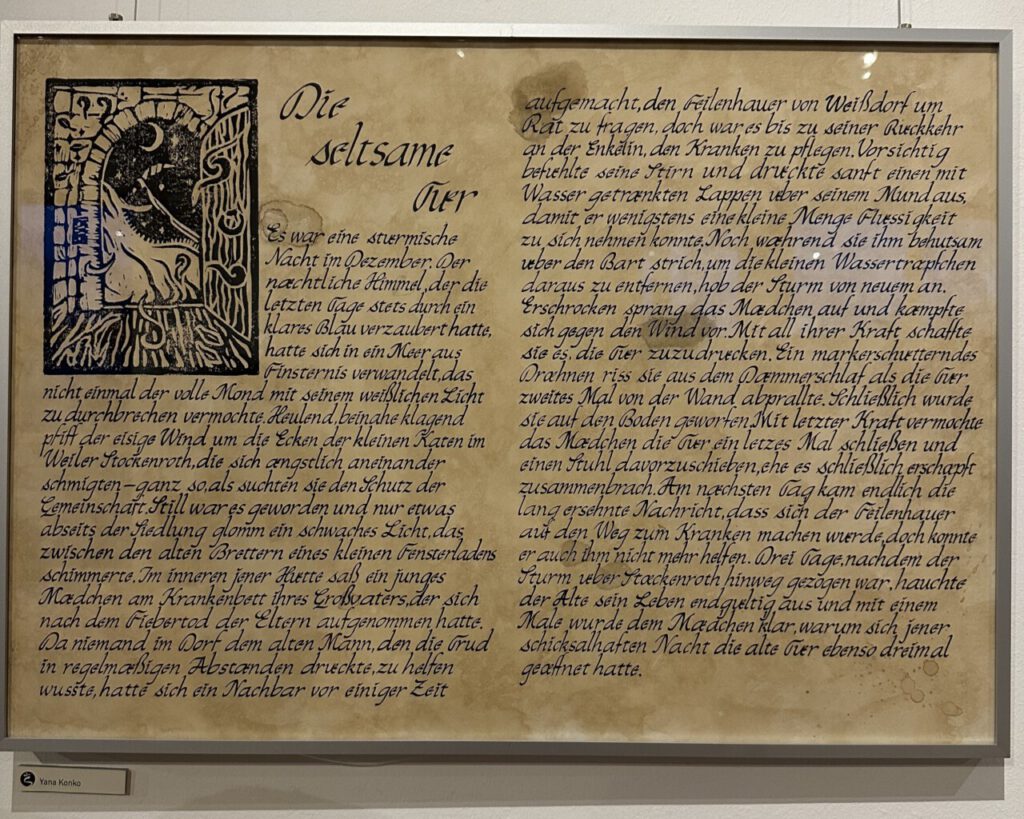 Die
seltsame
Tuer
Es war eine stuermische
Nacht im Dezember. Der
næchtliche Himmel, der die
letzten Tage stets durch ein
klares Blau verzaubert hatte,
hatte sich in ein Meer aus
Finsternis verwandelt, das
nicht einmal der volle Mond mit seinem weißlichen Licht
zu durchbrechen vermochte. Heulend, beinahe klagend
pfiff der eisige Wind um die Ecken der kleinen Katen im
Weiler Stockenroth, die sich ængstlich aneinander
schmigten – ganz so, als suchten sie den Schutz der
Gemeinschaft. Still war es geworden und nur etwas
abseits der Siedlung glomm ein schwaches Licht, das
zwischen den alten Brettern eines kleinen Fensterladens
schimmerte. Im inneren jener Huette saß ein junges
Mædchen am Krankenbett ihres Großvaters, der sich
nach dem Fiebertod der Eltern aufgenommen hatte.
Da niemand im Dorf dem alten Mann, den die Trud
in regelmæßigen Abstænden drueckte, zu helfen
wusste, hatte sich ein Nachbar vor einiger Zeit
aufgemacht, den Feilenhauer von Weißdorf um
Rat zu fragen, doch war es bis zu seiner Rueckkehr
an der Enkelin, den Kranken zu pflegen. Vorsichtig
befuehlte seine Stirn und drueckte sanft einen mit
Wasser getrænkten Lappen ueber seinem Mund aus,
damit er wenigstens eine kleine Menge Fluessigkeit
zu sich nehmen konnte. Noch wæhrend sie ihm behutsam
ueber den Bart strich, um die kleinen Wassertrœpfchen
daraus zu entfernen, hob der Sturm von neuem an.
Erschrocken sprang das Mædchen auf und kæmpfte
sich gegen den Wind vor. Mit all ihrer Kraft schaffte
sie es, die Tuer zuzudruecken. Ein markerschuetterndes
Drœhnen riss sie aus dem Dæmmerschlaf als die Tuer
zweites Mal von der Wand abprallte. Schließlich wurde
sie auf den Boden geworfen. Mit letzter Kraft vermochte
das Mædchen die Tuer ein letzes Mal schließen und
einen Stuhl davorzuschieben, ehe es schließlich erschœpft
zusammenbrach. Am næchsten Tag kam endlich die
lang ersehnte Nachricht, dass sich der Feilenhauer
auf den Weg zum Kranken machen wuerde, doch konnte
er auch ihm nicht mehr helfen. Drei Tage, nachdem der
Sturm ueber Stockenroth hinweg gezogen war, hauchte
der Alte sein Leben endgueltig aus und mit einem
Male wurde dem Mædchen klar, warum sich jener
schicksalhaften Nacht die alte Tuer ebenso dreimal
geœffnet hatte.
Yana Konko